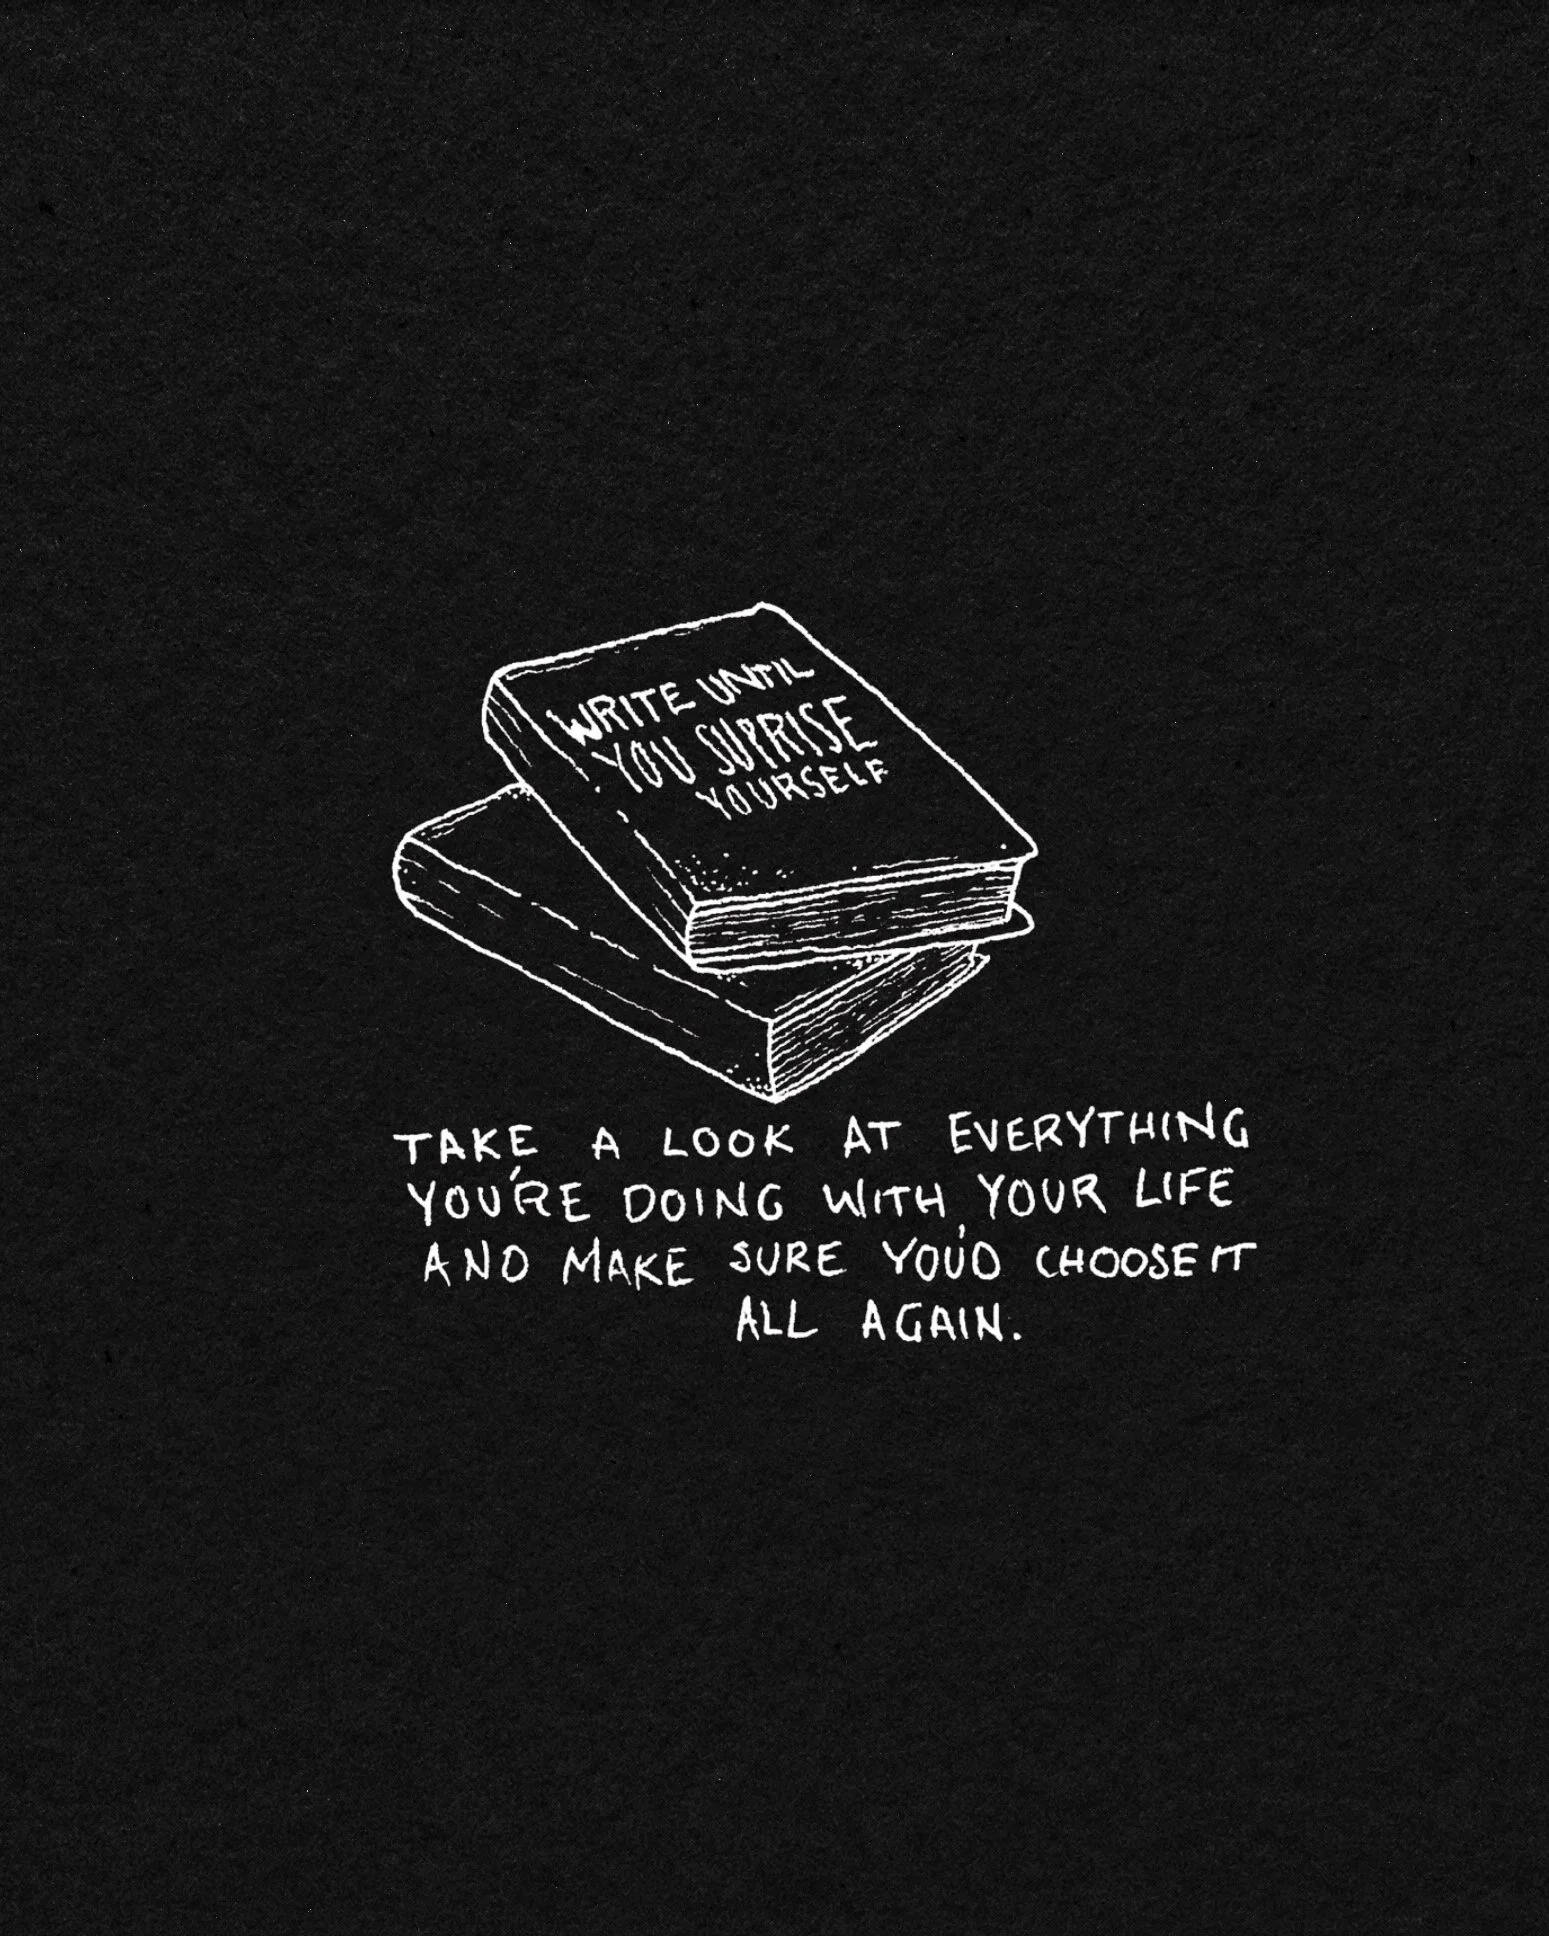 WRITE UNTIL
YOU SUPRISE
YOURSELF
TAKE A LOOK AT EVERYTHING
YOU'RE DOING WITH YOUR LIFE
AND MAKE SURE YOU'D CHOOSE IT
ALL AGAIN.